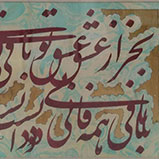 بجز از عشق عشق تو باقی
باقی همه فانی